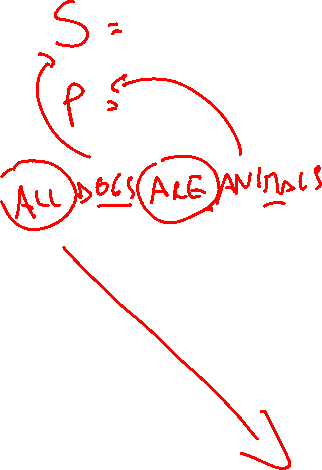 S =
P =
ALL DOGS ARE ANIMALS